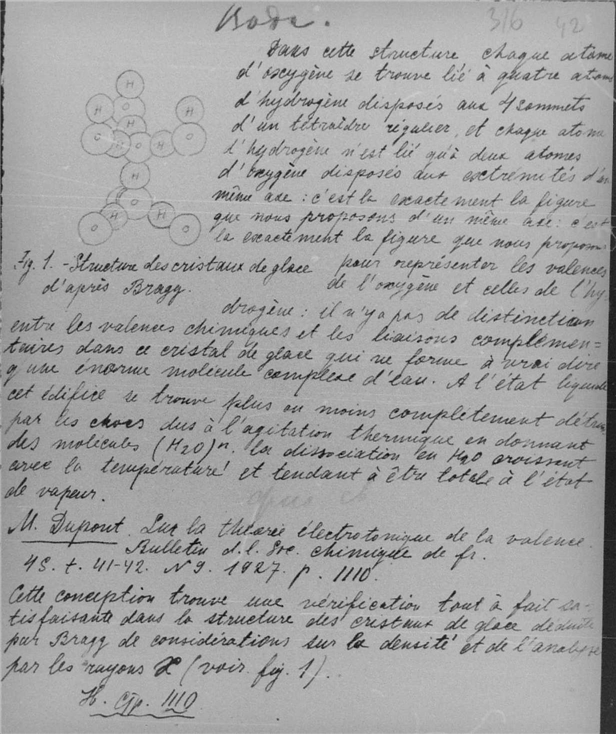 Вода.
316 42
Dans cette structure chaque atome
d'oxygène se trouve lié à quatre atom
d'hydrogène disposés aux 4 sommets
d'un tétraèdre régulier, et chaque atome
d'hydrogène n'est lié qu'à deux atomes
d'oxygène disposés aux extremités d'un
même axe : c'est la exactement la figure
que nous proposons d'un même axe : c'est
la exactement la figure que nous proposons
pour représenter les valences
de l'oxygène et celles de l'hy
Fig. 1. - Structure des cristaux de glace
d'après Bragg.
drogène : il n'y a pas de distinction
entre les valences chimiques et les liaisons complémen=
taires dans ce cristal de glace qui ne forme à vrai dire
q'une énorme molécule complexe d'eau. A l'état liquide
cet édifice se trouve plus en moins complètement détruit
par les chocs dus à l'agitation thermique en donnant
des molecules (H2O)n. la dissociation en H2O croissant
avec la température et tendant à être totale à l'état
de vapeur.
M. Dupont. Sur la théorie électrotonique de la valence.
Bulletin d. l. Soc. chimique de fr.
4S. t. 41-42. N 9. 1927. p. 1110.
Cette conception trouve une vérification tout à fait sa-
tisfaisante dans la structure des cristaux de glace déduite
par Bragg de considérations sur la densité et de l'analyse
par les rayons X (voir fig. 1).
Н. стр. 1110
H
O
H
H
O
H
O
H
O
H
O
H
H
O
H
O
O